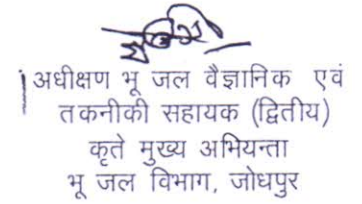 अधीक्षण भू जल वैज्ञानिक एवं
तकनीकी सहायक (द्वितीय)
कृते मुख्य अभियन्ता
भू जल विभाग, जोधपुर